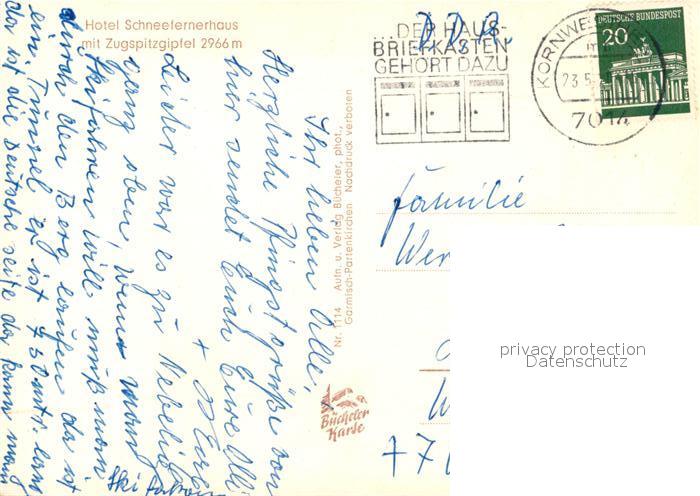 Hotel Schneefernerhaus
mit Zugspitzgipfel 2966 m
D.D.R.
...DER HAUS-
BRIEFKASTEN
GEHÖRT DAZU
KORNWES
23.5.
7014
DEUTSCHE BUNDESPOST
20
Nr. 1114 Aufn. u. Verlag Bücheler, phot.,
Garmisch-Partenkirchen Nachdruck verboten
Bücheler
Karte
Familie
Wer
Ihr lieben Alle,
Herzliche Pfingstgrüße von
hier sendet Euch Eure Elli
+
Leider war es zu Nebelig
ganz oben, wenn man
Skifahren will muß man
durch den Berg laufen da ist
ein Tunnel er ist 750 mtr. lang
das ist die Deutsche seite da kann man
Ski fahren
privacy protection
Datenschutz